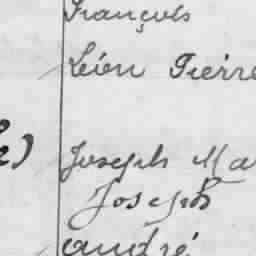 François
Léon Pierre
Joseph Ma
Joseph
André